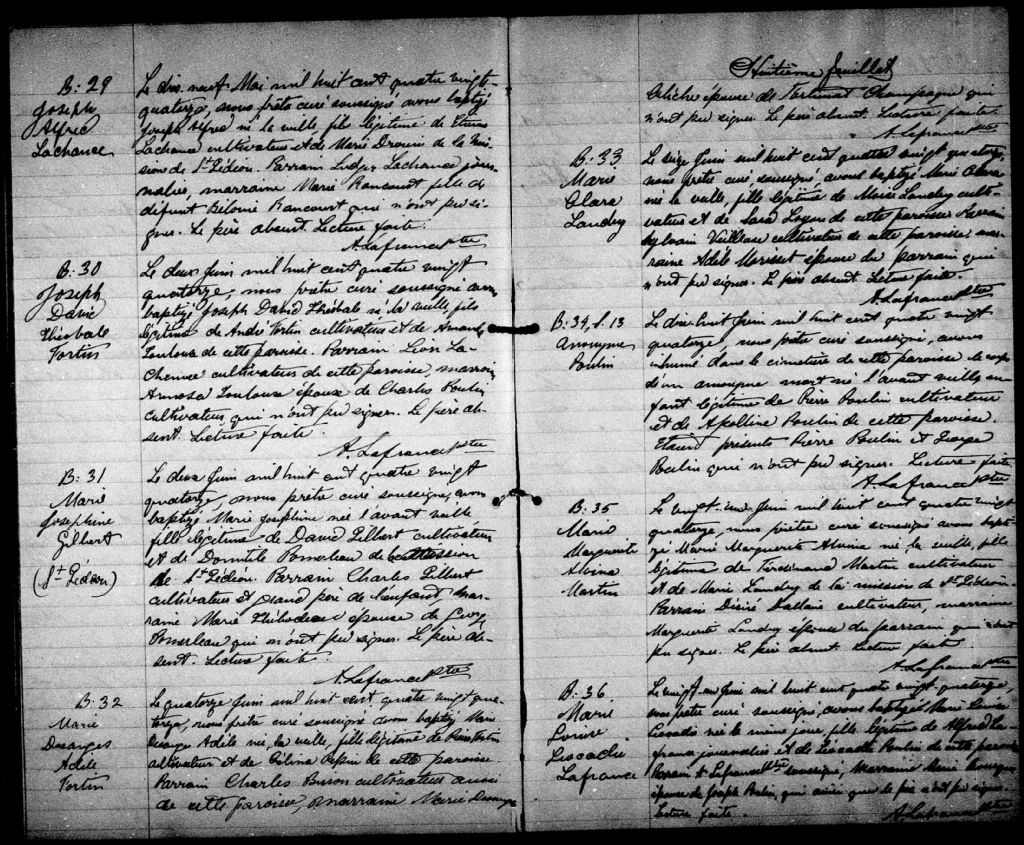 B. 29
Joseph
Alfred
Lachance
Le dix neuf Mai mil huit cent quatre vingt-
quatorze, nous prêtre curé soussigné avons baptizé
Joseph Alfred né la veille, fils légitime de
Lachance cultivateur et de Marie Drouin de la mis-
sion de St Gédéon. Parrain Lachance jour-
nalier, marraine Marie Rancourt fille de
défunt Rancourt qui n'ont pu si-
gner. Le père absent. Lecture faite.
A. Lafrance Ptre
B. 30
Joseph
David
Théobale
Fortin
Le deux Juin mil huit cent quatre vingt
quatorze, nous prêtre curé soussigné avons
baptizé Joseph David Théobale né la veille, fils
légitime de André Fortin cultivateur et de
Toulouse de cette paroisse. Parrain Léon La-
cultivateur de cette paroisse, marraine
Toulouse épouse de Charles Poulin
cultivateur, qui n'ont pu signer. Le père ab-
sent. Lecture faite.
A. Lafrance Ptre
B. 31
Marie
Josephine
Gilbert
(St Gédéon)
Le deux Juin mil huit cent quatre vingt
quatorze, nous prêtre curé soussigné, avons
baptizé Marie Joséphine née l'avant veille
fille légitime de David Gilbert cultivateur
et de Domitile Pomerleau de la mission
de St Gédéon. Parrain Charles Gilbert
cultivateur et grand père de l'enfant, mar-
raine Marie Thibodeau épouse de
Pomerleau qui n'ont pu signer. Le père ab-
sent. Lecture faite.
A. Lafrance Ptre
B. 32
Marie
Desanges
Adèle
Fortin
Le quatorze Juin mil huit cent quatre vingt qua-
torze, nous prêtre curé soussigné avons baptizé Marie
Desanges Adèle née la veille, fille légitime de Fortin
cultivateur et de de cette paroisse.
Parrain Charles cultivateur aussi
de cette paroisse, marraine Marie
Huitième feuillet
épouse de Fortunat Champagne qui
n'ont pu signer. Le père absent. Lecture faite.
A. Lafrance Ptre
B. 33
Marie
Clara
Landry
Le seize Juin mil huit cent quatre vingt quatorze,
nous prêtre curé, soussigné avons baptizé Marie Clara
née la veille, fille légitime de Landry culti-
vateur et de de cette paroisse Parrain
Sylvain Veilleux cultivateur de cette paroisse, mar-
raine Adèle Morisset épouse du parrain qui
n'ont pu signer. Le père absent. Lecture faite.
A. Lafrance Ptre
B. 34, S. 13
Anonyme
Poulin
Le dix huit Juin mil huit cent quatre vingt
quatorze, nous prêtre curé soussigné, avons
inhumé dans le cimetière de cette paroisse le corps
d'un anonyme mort né l'avant veille, en-
fant légitime de Pierre Poulin cultivateur
et de Apolline Poulin de cette paroisse.
Etaient présents Pierre Poulin et George
Poulin qui n'ont pu signer. Lecture faite.
A. Lafrance Ptre
B. 35
Marie
Marguerite
Alvina
Martin
Le vingt-un Juin mil huit cent quatre vingt
quatorze, nous prêtre curé soussigné avons bapti-
zé Marie Marguerite Alvina née la veille, fille
légitime de Ferdinand Martin cultivateur
et de Marie Landry de la mission de St Gédéon
Parrain Désiré cultivateur, marraine
Marguerite Landry épouse du parrain qui n'ont
pu signer. Le père absent. Lecture faite
A. Lafrance Ptre
B. 36
Marie
Louise
Léocadie
Lafrance
Le vingt un Juin mil huit cent quatre vingt quatorze,
nous prêtre curé soussigné, avons baptizé Marie Louise
Léocadie née le même jour, fille légitime de Alfred La-
france journalier et de Léocadie Poulin de cette paroisse
Parrain A Lafrance Ptre soussigné, Marraine Marie
épouse de Joseph Poulin, qui ainsi que le père n'ont pu signer.
Lecture faite.
A. Lafrance Ptre